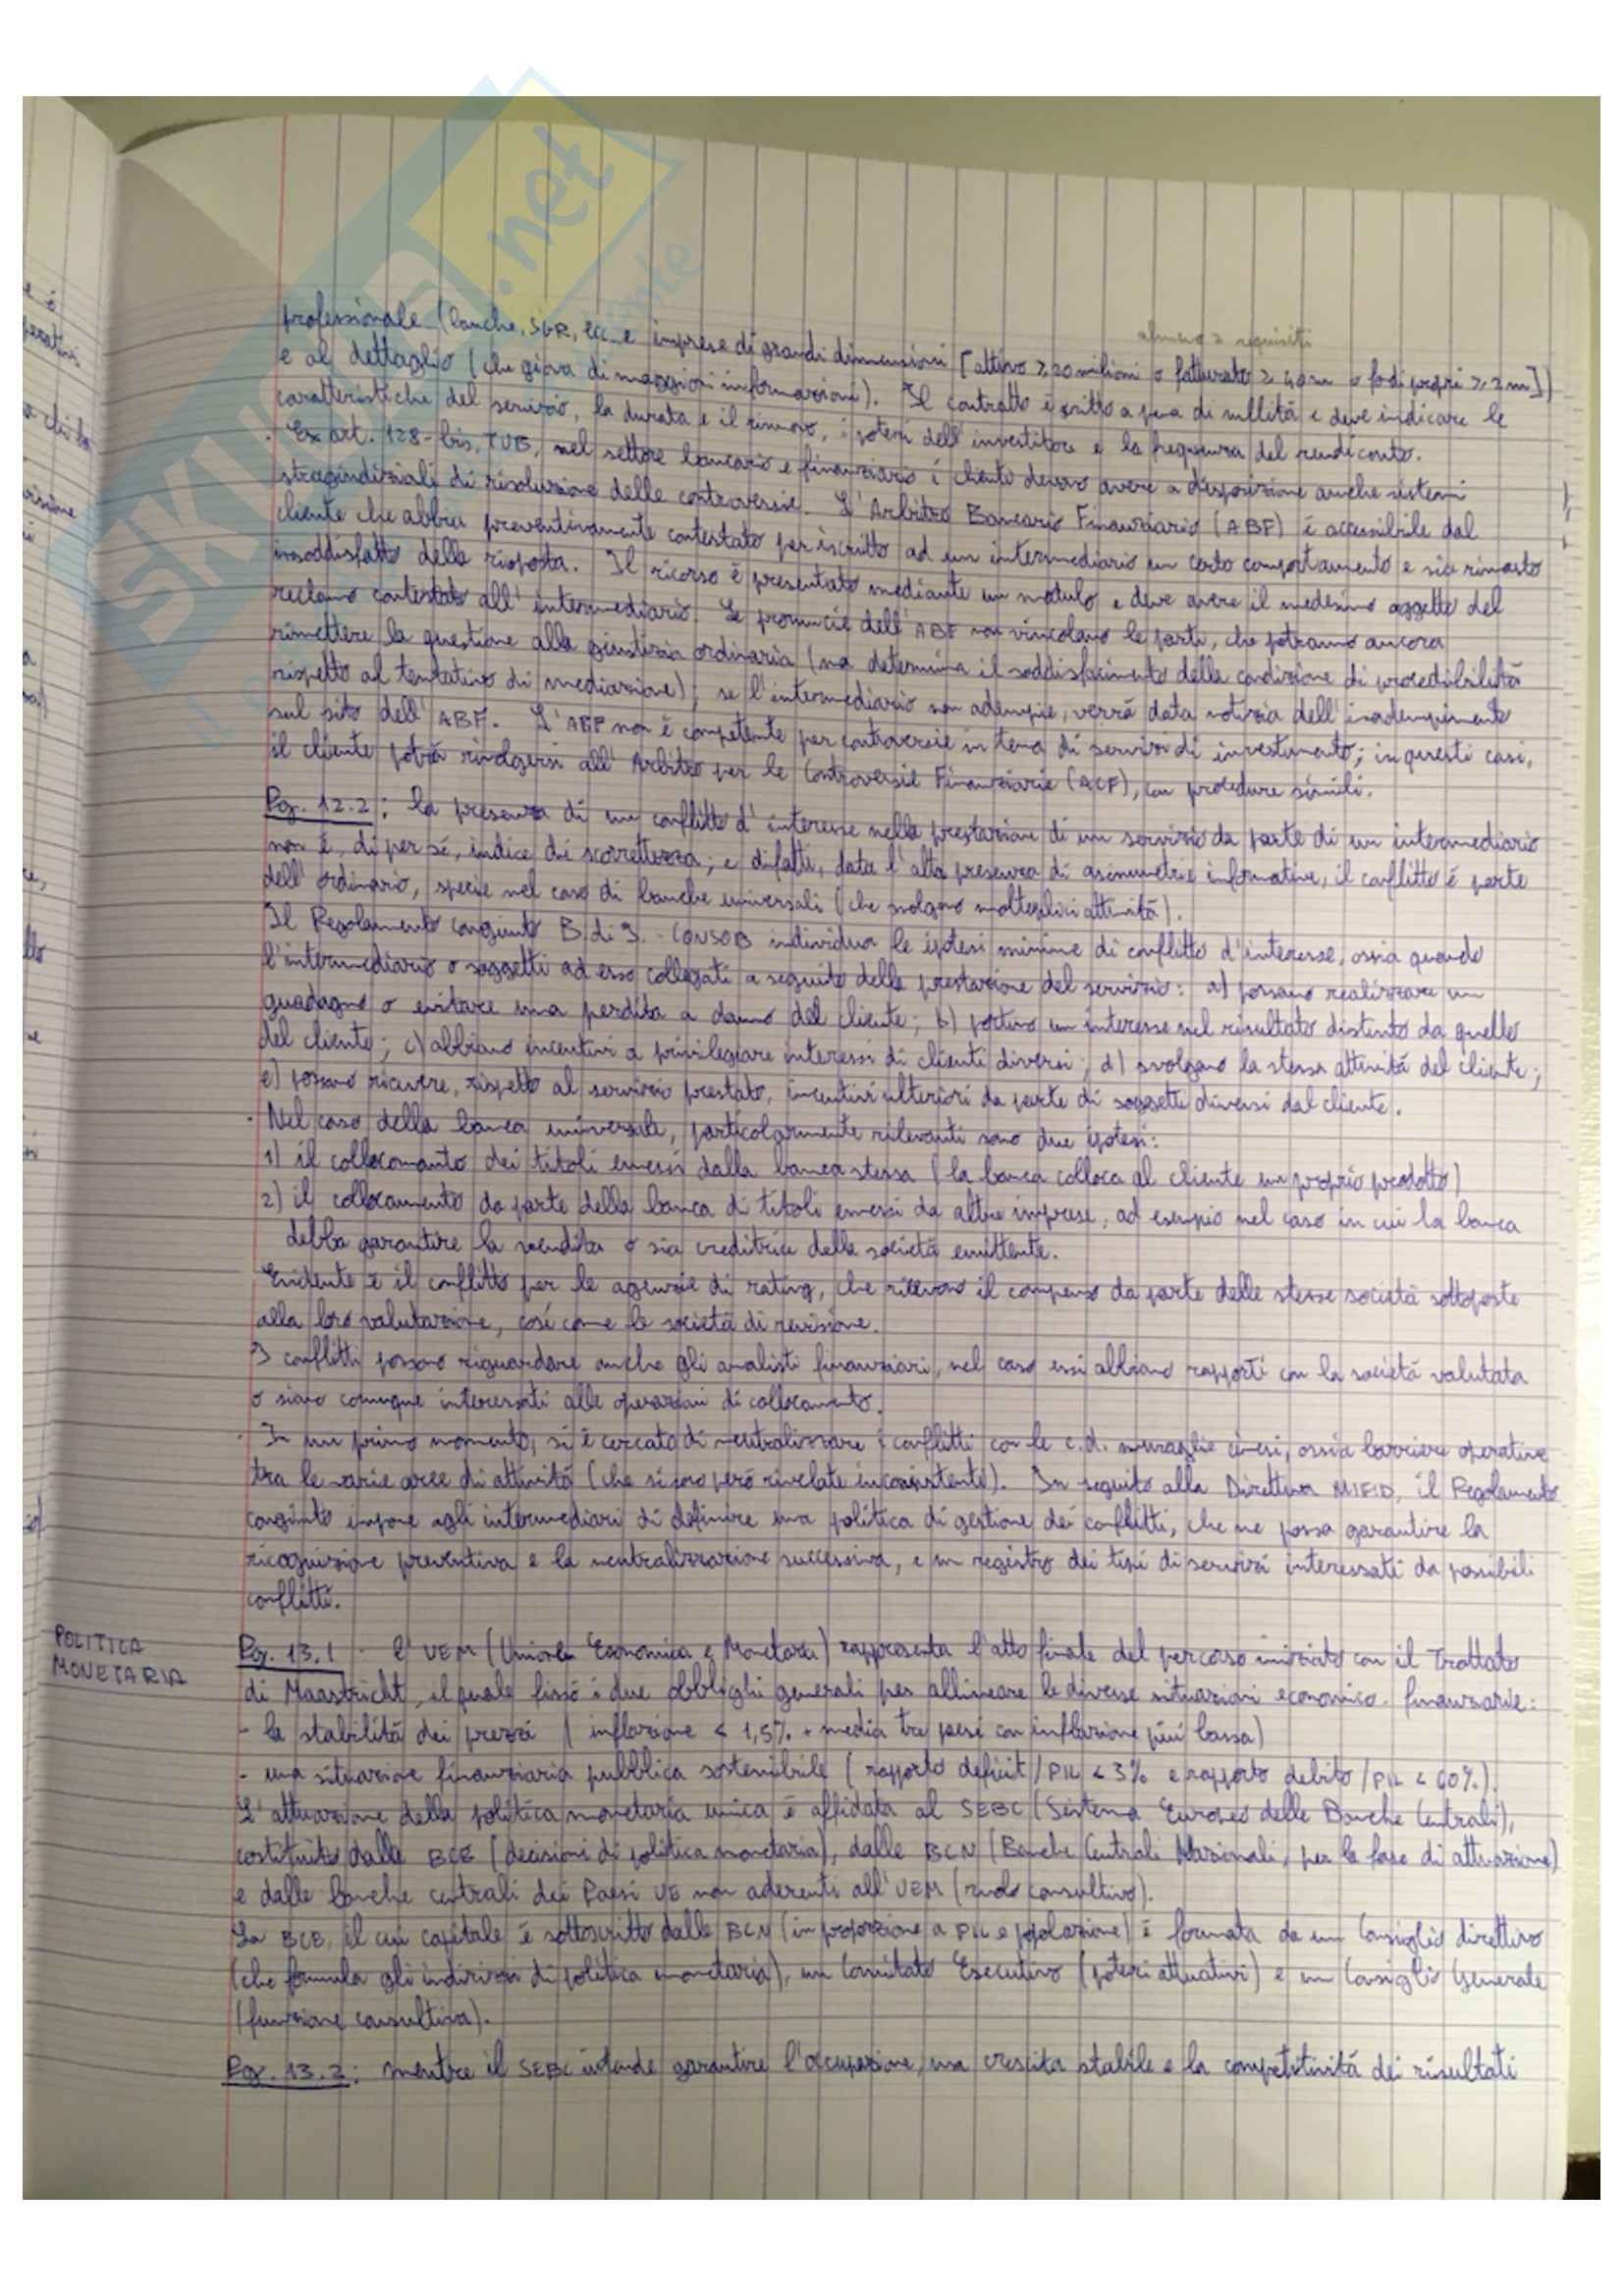 almeno 2 requisiti
professionale (banche, SGR, ecc. e imprese di grandi dimensioni [attivo ≥ 20 milioni o fatturato ≥ 40 m o fondi propri ≥ 2 m])
e al dettaglio (che giova di maggiori informazioni). Il contratto è scritto a pena di nullità e deve indicare le
caratteristiche del servizio, la durata e il rinnovo, i poteri dell'investitore e la frequenza del rendiconto.
· Ex art. 128-bis, TUB, nel settore bancario e finanziario i clienti devono avere a disposizione anche sistemi
stragiudiziali di risoluzione delle controversie. L'Arbitro Bancario Finanziario (ABF) è accessibile dal
cliente che abbia preventivamente contestato per iscritto ad un intermediario un certo comportamento e sia rimasto
insoddisfatto della risposta. Il ricorso è presentato mediante un modulo e deve avere il medesimo oggetto del
reclamo contestato all'intermediario. Le pronunce dell'ABF non vincolano le parti, che potranno ancora
rimettere la questione alla giustizia ordinaria (ma determina il soddisfacimento della condizione di procedibilità
rispetto al tentativo di mediazione); se l'intermediario non adempie, verrà data notizia dell'inadempimento
sul sito dell'ABF. L'ABF non è competente per controversie in tema di servizi di investimento; in questi casi,
il cliente potrà rivolgersi all'Arbitro per le Controversie Finanziarie (ACF), con procedure simili.
Pag. 12.2: la presenza di un conflitto d'interesse nella prestazione di un servizio da parte di un intermediario
non è, di per sé, indice di scorrettezza; e difatti, data l'alta presenza di asimmetrie informative, il conflitto è parte
dell'ordinario, specie nel caso di banche universali (che svolgono molteplici attività).
Il Regolamento congiunto B. di I. - CONSOB individua le ipotesi minime di conflitto d'interesse, ossia quando
l'intermediario o soggetti ad esso collegati a seguito della prestazione del servizio: a) possano realizzare un
guadagno o evitare una perdita a danno del cliente; b) portino un interesse nel risultato distinto da quello
del cliente; c) abbiano incentivi a privilegiare interessi di clienti diversi; d) svolgano la stessa attività del cliente;
e) possano ricevere, rispetto al servizio prestato, incentivi ulteriori da parte di soggetti diversi dal cliente.
· Nel caso della banca universale, particolarmente rilevanti sono due ipotesi:
1) il collocamento dei titoli emessi dalla banca stessa (la banca colloca al cliente un proprio prodotto)
2) il collocamento da parte della banca di titoli emessi da altre imprese, ad esempio nel caso in cui la banca
debba garantire la vendita o sia creditrice della società emittente.
Evidente è il conflitto per le agenzie di rating, che ricevono il compenso da parte delle stesse società sottoposte
alla loro valutazione, così come le società di revisione.
I conflitti possono riguardare anche gli analisti finanziari, nel caso essi abbiano rapporti con la società valutata
o siano comunque interessati alle operazioni di collocamento.
· In un primo momento, si è cercato di neutralizzare i conflitti con le c.d. muraglie cinesi, ossia barriere operative
tra le varie aree di attività (che si sono però rivelate inconsistenti). In seguito alla Direttiva MIFID, il Regolamento
congiunto impone agli intermediari di definire una politica di gestione dei conflitti, che ne possa garantire la
ricognizione preventiva e la neutralizzazione successiva, e un registro dei tipi di servizi interessati da possibili
conflitti.
POLITICA
MONETARIA
Pag. 13.1 · L'UEM (Unione Economica e Monetaria) rappresenta l'atto finale del percorso iniziato con il Trattato
di Maastricht, il quale fissò i due obblighi generali per allineare le diverse situazioni economico-finanziarie:
- la stabilità dei prezzi (inflazione < 1,5% + media tre paesi con inflazione più bassa)
- una situazione finanziaria pubblica sostenibile (rapporto deficit/PIL < 3% e rapporto debito/PIL < 60%).
L'attuazione della politica monetaria unica è affidata al SEBC (Sistema Europeo delle Banche Centrali),
costituito dalla BCE (decisioni di politica monetaria), dalle BCN (Banche Centrali Nazionali, per la fase di attuazione)
e dalle banche centrali dei Paesi UE non aderenti all'UEM (ruolo consultivo).
La BCE, il cui capitale è sottoscritto dalle BCN (in proporzione a PIL e popolazione) è formata da un Consiglio direttivo
(che formula gli indirizzi di politica monetaria), un Comitato Esecutivo (poteri attuativi) e un Consiglio Generale
(funzione consultiva).
Pag. 13.2: mentre il SEBC intende garantire l'occupazione, una crescita stabile e la competitività dei risultati